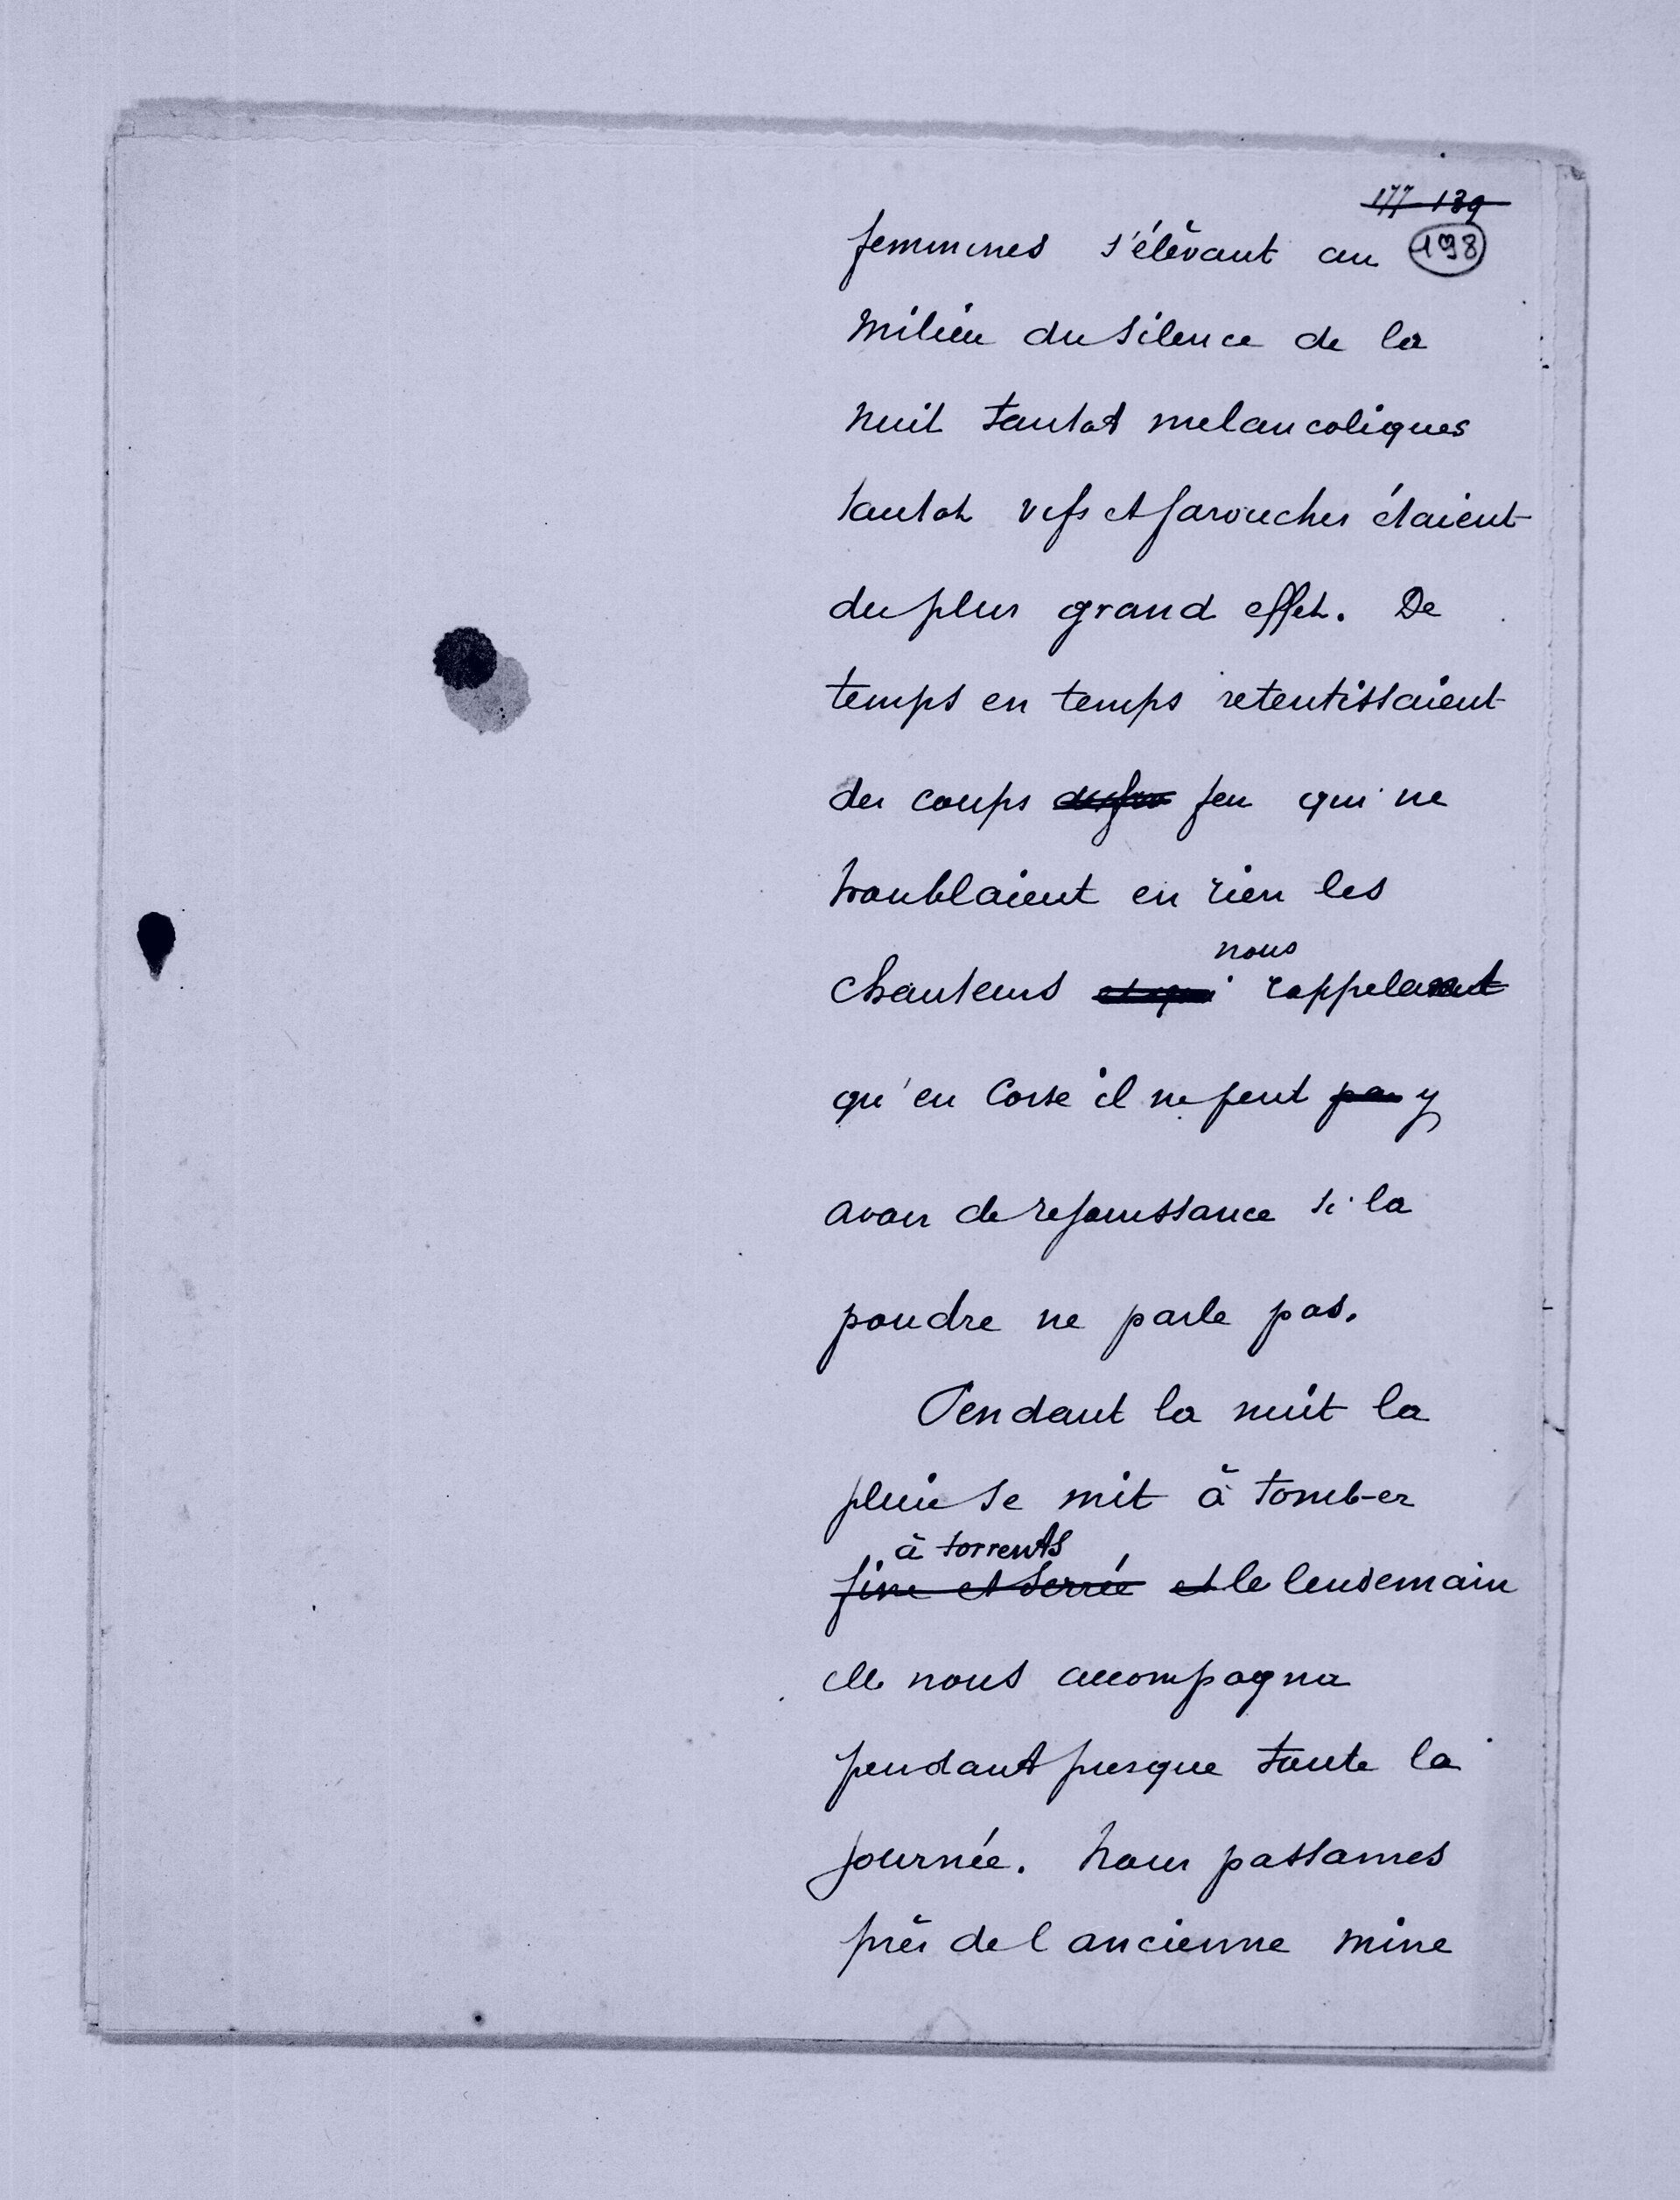 177 139
femmines s'élèvant au 198
milieu du silence de la
nuit tantot melancoliques
tantot vifs et farouches étaient
du plus grand effet. De
temps en temps retentissaient
des coups feu qui ne
troublaient en rien les
nous
chanteurs et qui rappelant
qu'en Corse il ne peut pas y
avoir de rejouissance si la
poudre ne parle pas.
Pendant la nuit la
pluie se mit à tomber
à torrents
fine et serrée et le lendemain
elle nous accompagna
pendant presque toute la
journée. Nous passames
près de l ancienne mine